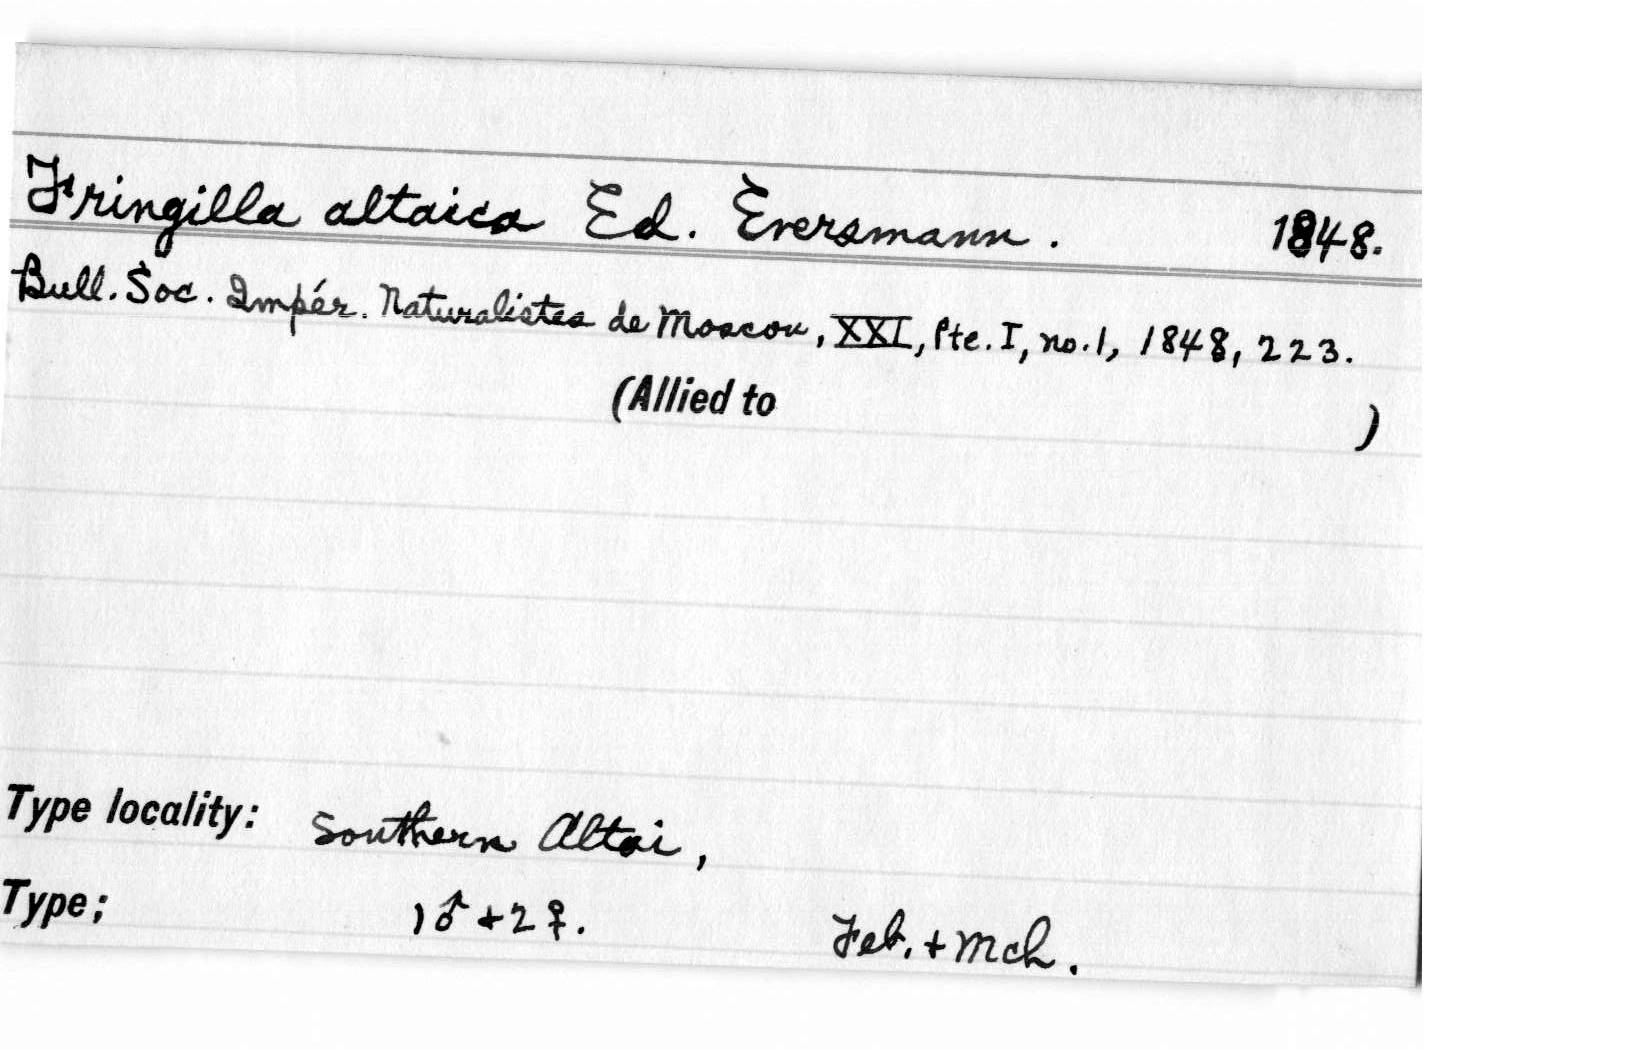 Fringilla altaica Ed. Eversmann. 1848.
Bull. Soc. Impér. Naturalistes de Moscou, XXI, Pte. I, no. 1, 1848, 223.
(Allied to )
Type locality: Southern Altai,
Type; 1♂ + 2♀. Feb. + Mch.